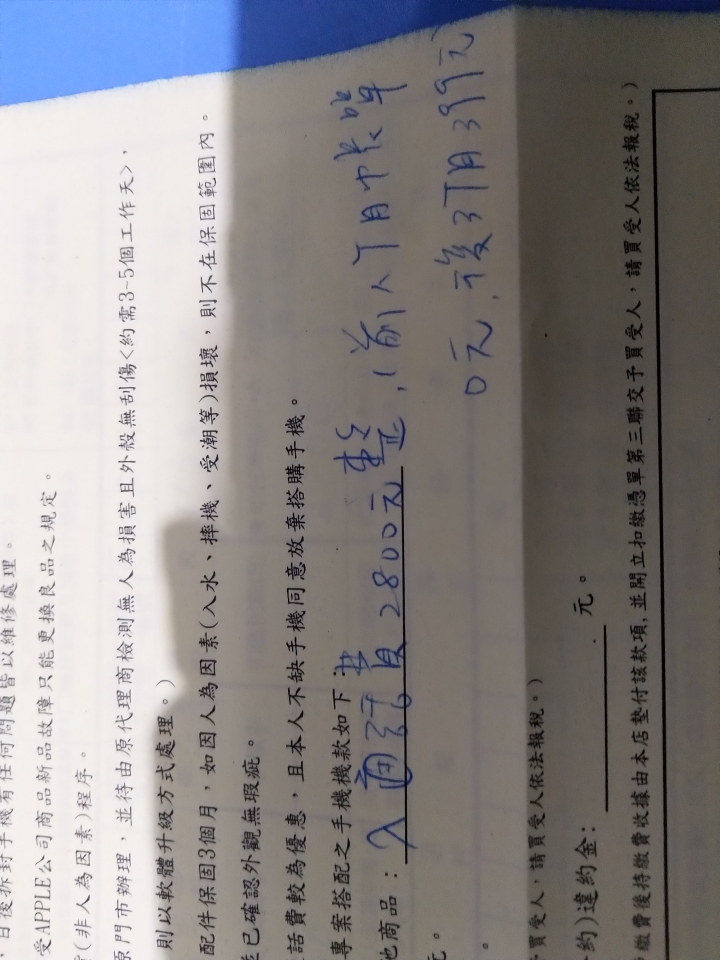 ,日後拆封手機有任何問題皆以維修處理。
受APPLE公司商品新品故障只能更換良品之規定。
(非人為因素)程序。
原門市辦理,並待由原代理商檢測無人為損害且外殼無刮傷<約需3~5個工作天>,
則以軟體升級方式處理。)
配件保固3個月,如因人為因素(入水、摔機、受潮等)損壞,則不在保固範圍內。
並已確認外觀無瑕疵。
話費較為優惠,且本人不缺手機同意放棄搭購手機。
專案搭配之手機機款如下:
他商品:入商預費2800元整,(前人丁月帳單
0元,後3丁月399元)
元。
。
予買受人,請買受人依法報稅。)
約)違約金: 元。
繳費後持繳費收據由本店墊付該款項,並開立扣繳憑單第三聯交予買受人,請買受人依法報稅。)